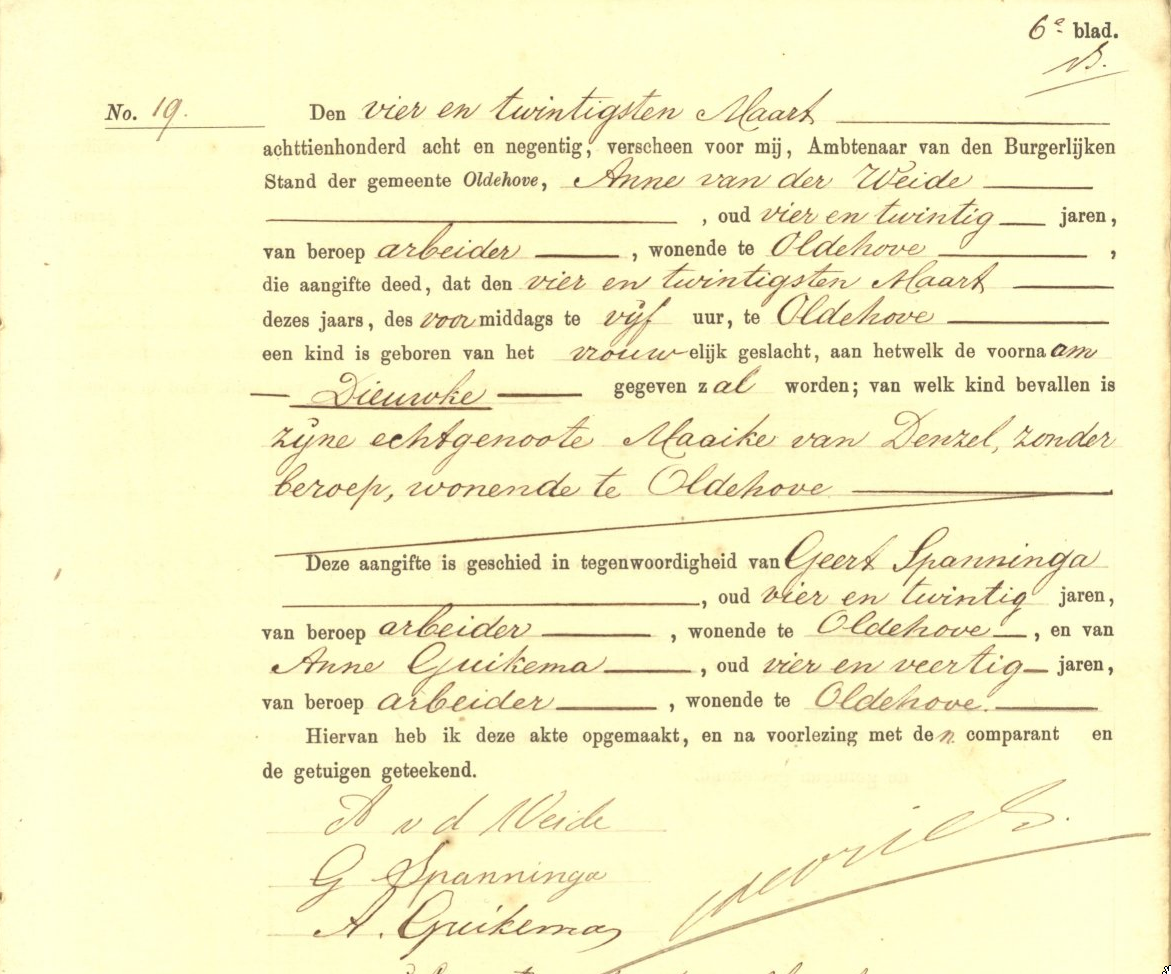 6e blad.
No. 19.
Den vier en twintigsten Maart
achttienhonderd acht en negentig, verscheen voor mij, Ambtenaar van den Burgerlijken
Stand der gemeente Oldehove, Anne van der Weide
, oud vier en twintig jaren,
van beroep arbeider, wonende te Oldehove,
die aangifte deed, dat den vier en twintigsten Maart
dezes jaars, des voormiddags te vijf uur, te Oldehove
een kind is geboren van het vrouwelijk geslacht, aan hetwelk de voornaam
Dieuwke gegeven zal worden; van welk kind bevallen is
zijne echtgenoote Maaike van Denzel, zonder
beroep, wonende te Oldehove
Deze aangifte is geschied in tegenwoordigheid van Geert Spanninga
, oud vier en twintig jaren,
van beroep arbeider, wonende te Oldehove, en van
Anne Guikema, oud vier en veertig jaren,
van beroep arbeider, wonende te Oldehove.
Hiervan heb ik deze akte opgemaakt, en na voorlezing met den comparant en
de getuigen geteekend.
A v d Weide
G Spanninga
A. Guikema